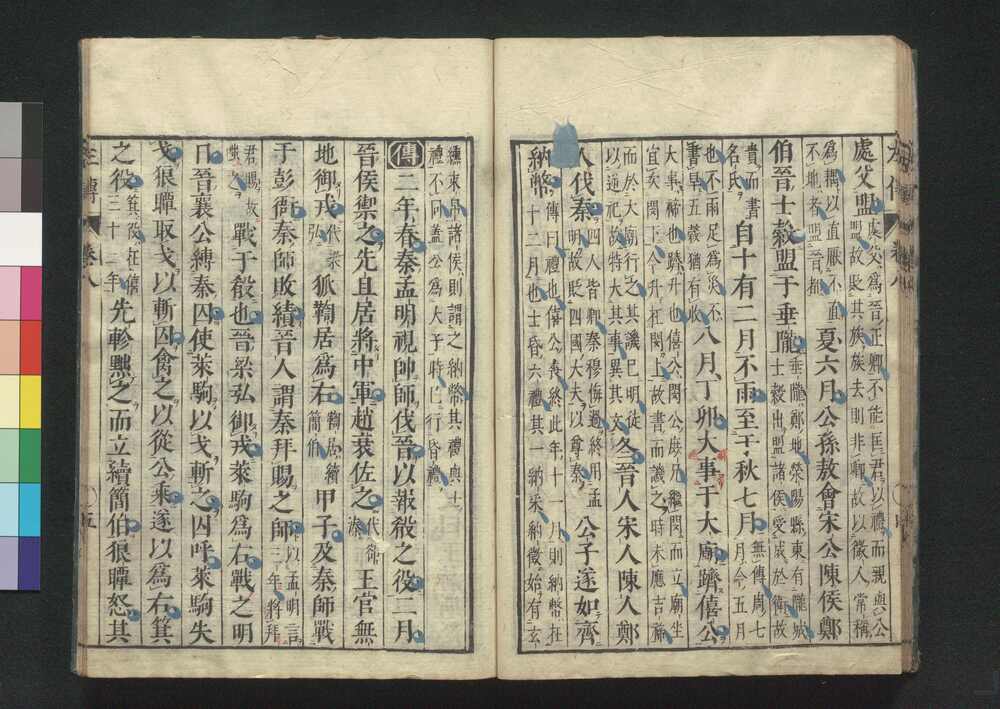 處父盟處父爲晉正卿不能匡君以禮而親與公盟故貶其族族去則非卿故以微人常稱
爲耦以直厭不直不地者盟晉都夏六月公孫敖會宋公陳侯鄭
伯晉士縠盟于垂隴垂隴鄭地滎陽縣東有隴城士縠出盟諸侯受成於衞故
貴而書名氏自十有二月不雨至于秋七月無傳周七月今五月
也不雨足爲災不書旱五穀猶有收八月丁卯大事于大廟躋僖公
大事禘也躋升也僖公閔公庶兄繼閔而立廟坐宜次閔下今升在閔上故書而譏之時未應吉禘
而於大廟行之其譏已明徒以逆祀故特大其事異其文冬晉人宋人陳人鄭
人伐秦四人皆卿秦穆悔過終用孟明故貶四國大夫以尊秦公子遂如齊
納幣傳曰禮也僖公喪終此年十一月則納幣在十二月也士昏六禮其一納采納徵始有玄
纁束帛諸侯則謂之納幣其禮與士禮不同蓋公爲大子時已行昏禮
傳二年春秦孟明視帥師伐晉以報殽之役二月
晉侯禦之先且居將中軍趙衰佐之代郤溱王官無
地御戎代梁弘狐鞫居爲右鞫居續簡伯甲子及秦師戰
于彭衙秦師敗績晉人謂秦拜賜之師以孟明言三年將拜
君賜故嗤之戰于殽也晉梁弘御戎萊駒爲右戰之明
日晉襄公縛秦囚使萊駒以戈斬之囚呼萊駒失
戈狼瞫取戈以斬囚禽之以從公乘遂以爲右箕
之役箕役在僖三十三年先軫黜之而立續簡伯狼瞫怒其
左傳 卷八 五